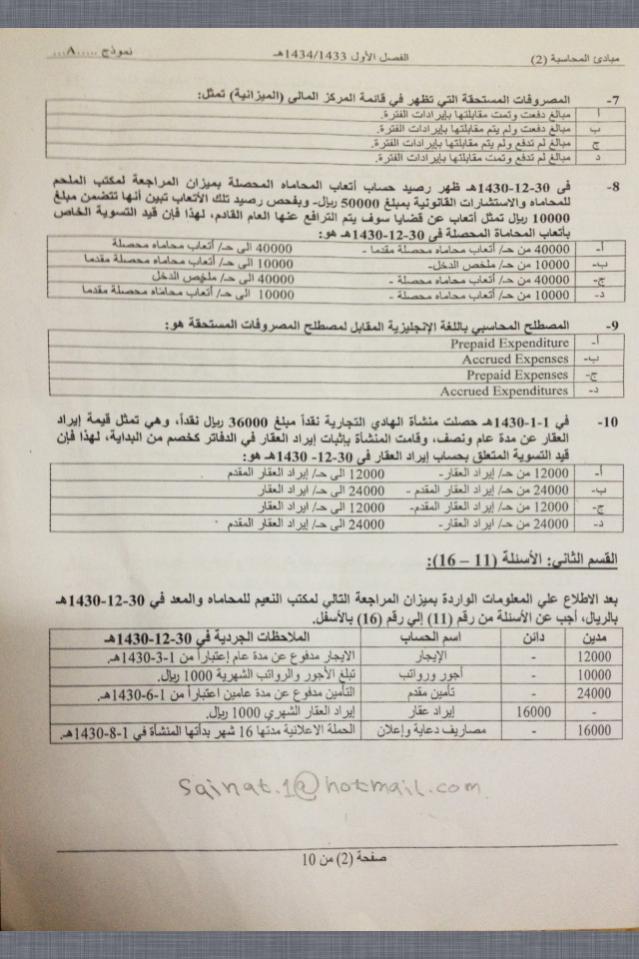 مبادئ المحاسبة (2) الفصل الأول 1434/1433هـ نموذج .....٨...
7- المصروفات المستحقة التي تظهر في قائمة المركز المالي (الميزانية) تمثل:
أ مبالغ دفعت وتمت مقابلتها بإيرادات الفترة.
ب مبالغ دفعت ولم يتم مقابلتها بإيرادات الفترة.
ج مبالغ لم تدفع ولم يتم مقابلتها بإيرادات الفترة.
د مبالغ لم تدفع وتمت مقابلتها بإيرادات الفترة.
8- في 30-12-1430هـ ظهر رصيد حساب أتعاب المحاماه المحصلة بميزان المراجعة لمكتب الملحم
للمحاماه والاستشارات القانونية بمبلغ 50000 ريال- وبفحص رصيد تلك الأتعاب تبين أنها تتضمن مبلغ
10000 ريال تمثل أتعاب عن قضايا سوف يتم الترافع عنها العام القادم، لهذا فإن قيد التسوية الخاص
بأتعاب المحاماة المحصلة في 30-12-1430هـ هو:
أ- 40000 من حـ/ أتعاب محاماه محصلة مقدما - 40000 الى حـ/ أتعاب محاماه محصلة
ب- 10000 من حـ/ ملخص الدخل- 10000 الى حـ/ أتعاب محاماه محصلة مقدما
ج- 40000 من حـ/ أتعاب محاماه محصلة - 40000 الى حـ/ ملخص الدخل
د- 10000 من حـ/ أتعاب محاماه محصلة - 10000 الى حـ/ أتعاب محاماه محصلة مقدما
9- المصطلح المحاسبي باللغة الإنجليزية المقابل لمصطلح المصروفات المستحقة هو:
أ- Prepaid Expenditure
ب- Accrued Expenses
ج- Prepaid Expenses
د- Accrued Expenditures
10- في 1-1-1430هـ حصلت منشأة الهادي التجارية نقداً مبلغ 36000 ريال نقداً، وهي تمثل قيمة إيراد
العقار عن مدة عام ونصف، وقامت المنشأة بإثبات إيراد العقار في الدفاتر كخصم من البداية، لهذا فإن
قيد التسوية المتعلق بحساب إيراد العقار في 30-12- 1430هـ هو:
أ- 12000 من حـ/ إيراد العقار- 12000 الى حـ/ ايراد العقار المقدم
ب- 24000 من حـ/ إيراد العقار المقدم - 24000 الى حـ/ ايراد العقار
ج- 12000 من حـ/ إيراد العقار المقدم- 12000 الى حـ/ ايراد العقار
د- 24000 من حـ/ إيراد العقار- 24000 الى حـ/ ايراد العقار المقدم
القسم الثاني: الأسئلة (11 – 16):
بعد الاطلاع علي المعلومات الواردة بميزان المراجعة التالي لمكتب النعيم للمحاماه والمعد في 30-12-1430هـ
بالريال، أجب عن الأسئلة من رقم (11) إلي رقم (16) بالأسفل.
مدين دائن اسم الحساب الملاحظات الجردية في 30-12-1430هـ
12000 - الإيجار الايجار مدفوع عن مدة عام إعتباراً من 1-3-1430هـ.
10000 - أجور ورواتب تبلغ الأجور والرواتب الشهرية 1000 ريال.
24000 - تأمين مقدم التأمين مدفوع عن مدة عامين اعتباراً من 1-6-1430هـ.
- 16000 إيراد عقار إيراد العقار الشهري 1000 ريال.
16000 - مصاريف دعاية وإعلان الحملة الاعلانية مدتها 16 شهر بدأتها المنشأة في 1-8-1430هـ.
sainat.1@hotmail.com
صفحة (2) من 10